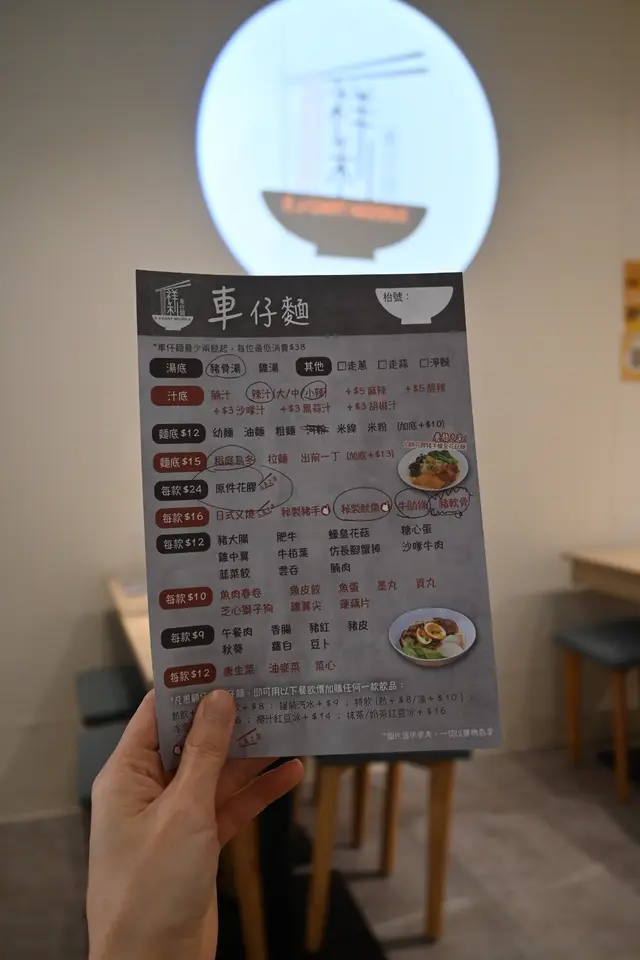 祥利
車仔麵
枱號：
*車仔麵最少兩餸起，每位最低消費$38
湯底 豬骨湯 雞湯 其他 □走蔥 □走蒜 □淨餸
汁底 腩汁 辣汁(大/中/小辣) +$5麻辣 +$5酸辣
+$3沙嗲汁 +$3黑蒜汁 +$3胡椒汁
麵底$12 幼麵 油麵 粗麵 河粉 米線 米粉 (加底+$10)
麵底$15 稻庭烏冬 拉麵 出前一丁 (加底+$13)
每款$24 原件花膠
每款$16 日式叉燒 秘製豬手 秘製魷魚 牛肋條 豬軟骨
每款$12 豬大腸 肥牛 蠔皇花菇 糖心蛋
雞中翼 牛栢葉 仿長腳蟹棒 沙嗲牛肉
韮菜餃 雲吞 腩肉
每款$10 魚肉春卷 魚皮餃 魚蛋 墨丸 貢丸
芝心獅子狗 雞翼尖 蓮藕片
每款$9 午餐肉 香腸 豬紅 豬皮
秋葵 蘿白 豆卜
每款$12 唐生菜 油麥菜 菜心
麵，即可用以下餐飲價加購任何一款飲品：
+$8 ; 罐裝汽水+$9 ; 特飲 (熱+$8/凍+$10) ;
椰汁紅豆冰+$14 ; 抹茶/奶茶紅豆冰+$16
*圖片僅供參考，一切以實物為準